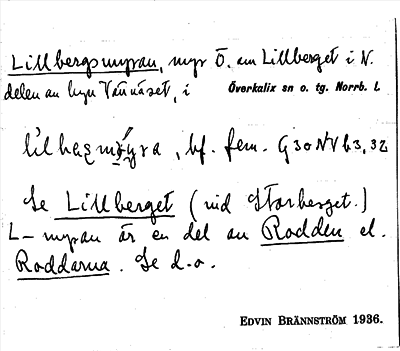 Lillbergsmyran, myr Ö. om Lillberget i N.
delen av byn Vännäset, i Överkalix sn o. tg. Norrb. l.
bf. fem. G30NVb3,32
Se Lillberget (vid Storberget.)
L– myran är en del av Rodden el.
Roddarna. Se d.o.
EDVIN BRÄNNSTRÖM 1936.